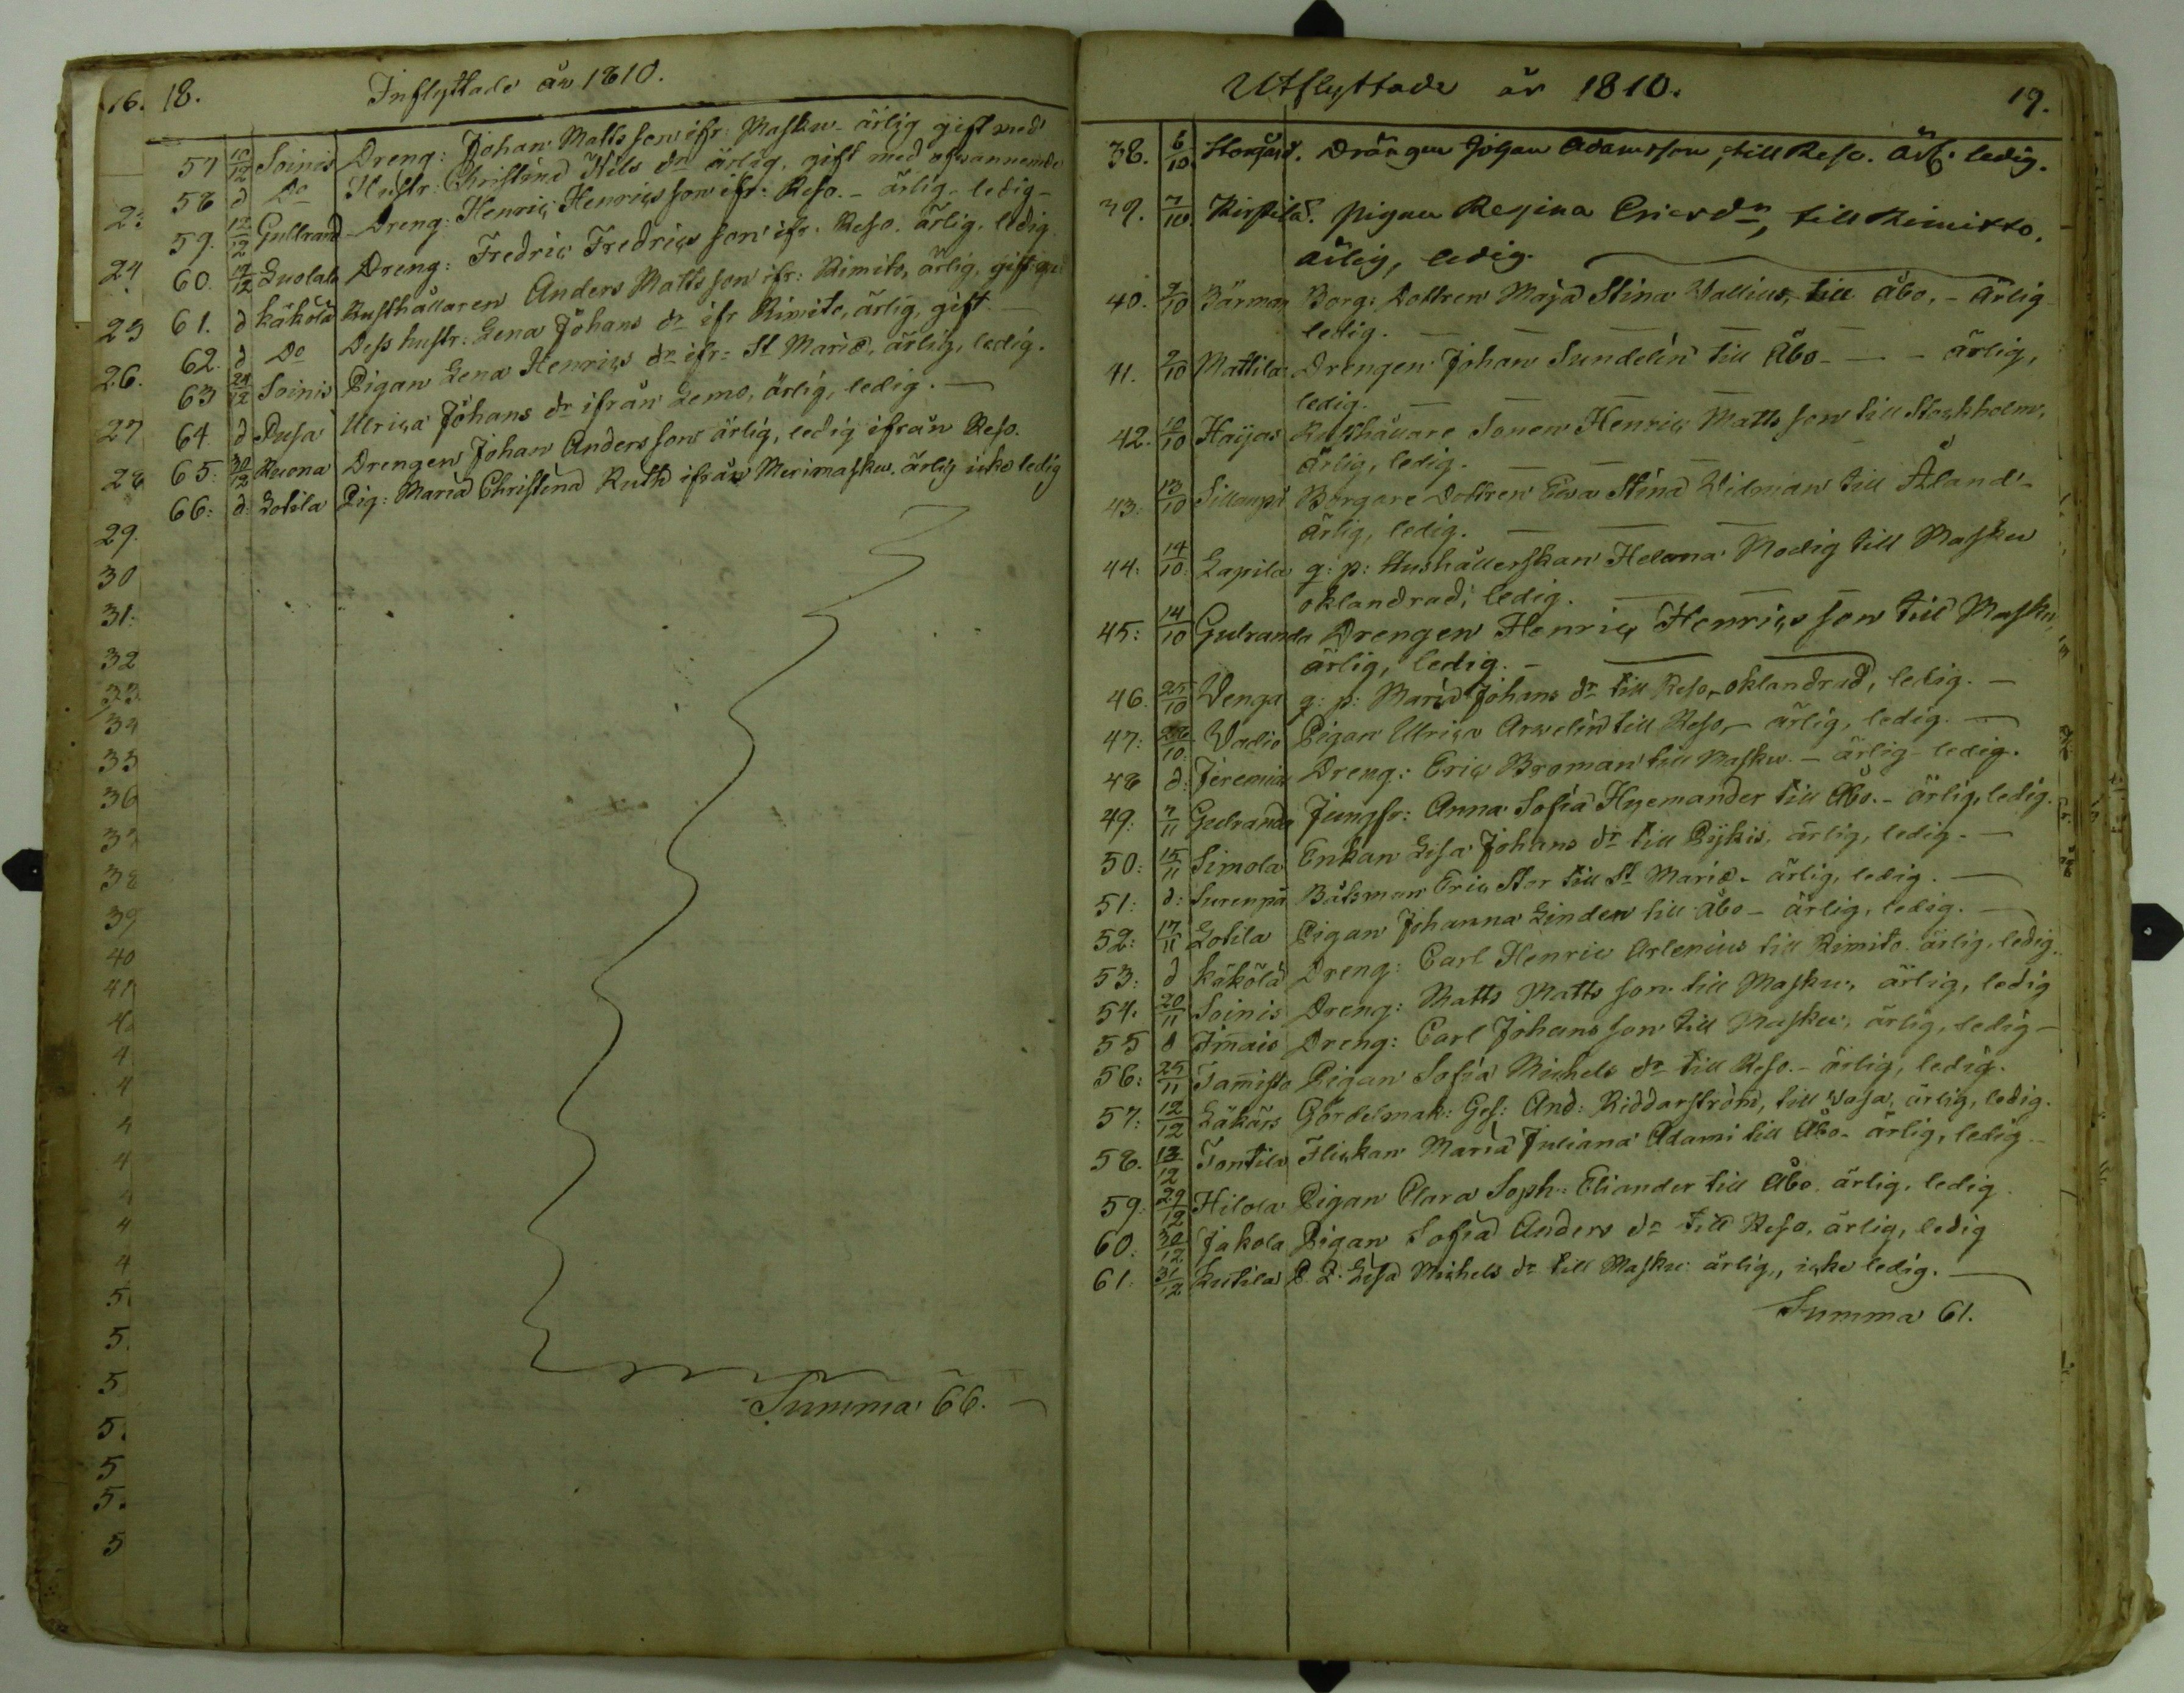 16. 18. Inflyttade år 1810.
57 10/12 Soinis Dreng: Johan Mattsson ifr: Masku - ärlig gift med
58 d Do Hustr: Christina Nils dr ärlig, gift med ofvannemde
59. 12/12 Gullrand Dreng: Henric Henricsson ifr: Reso. - ärlig - ledig -
60. 14/12 Dreng: Fredric Fredricsson ifr. Reso. ärlig, ledig.
61. d Käkölä Rusthållaren Anders Mattsson ifr: Rimito, ärlig, gift
62. d Do Dess hustr: Lena Johans dr ifr Rimito, ärlig, gift. -
63 24/12 Soinis Pigan Lena Henrics dr ifr: St Mariæ, ärlig, ledig.
64. d Pusa Ulrica Johans dr ifrån Lemo, ärlig, ledig. -
65: 30/12 Ruona Drengen Johan Andersson ärlig, ledig ifrån Reso.
66: d: Lotila Pig: Maria Christina Ruth ifrån Merimasku. ärlig icke ledig
23
24
25
26.
27
28
29.
30
31:
32
33
34
35
36
37
38
39
40
41
4
4
4
4
4
4
4
4
5
5.
5
5.
5
5.
5
Summa 66. -
Utflyttade år 1810. 19.
38. 6/10. Storgård. Drängen Johan Adamsson, till Reso. ärl: ledig.
39. 7/10. Kirstilä. Pigan Regina Ericsdr, till Rimitto.
ärlig, ledig.
40. 9/10 Bärman Borg: Dottren Maja Stina Wallius, till Åbo, - ärlig
ledig. - - - - -
41. 9/10 Mattila Drengen Johan Sundelin till Åbo - - - ärlig,
ledig. - - - -
42. 12/10 Haijas Rusthållare Sonen Henric Mattsson till Stockholm,
ärlig, ledig. - - - -
43: 13/10 Borgare Dottren Ewa Stina Widman till Åland -
ärlig, ledig. - - -
44: 14/10 Lapila q: p: Hushållerskan Helena Modig till Masku
oklandrad, ledig. - - -
45: 14/10 Gulranda Drengen Henric Henricsson till Masku,
ärlig, ledig. -
46. 25/10 Wenga q: p: Maria Johans dr till Reso, oklandrad, ledig. -
47: 10: Wadio Pigan Ulrica Arwelin till Reso, - ärlig, ledig. -
48 d: Jeremia Dreng: Eric Broman till Masku. - ärlig - ledig.
49: 7/11 Gulranda Jungfr: Anna Sofia Hyemander till Åbo. - ärlig, ledig.
50: 15/11 Simola Enkan Lisa Johans dr till Pijkis, ärlig, ledig. -
51: d: Surenpä Båtsman Eric Stor till St Mariæ - ärlig, ledig. -
52: 17/11 Lotila Pigan Johanna Linden till Åbo - ärlig, ledig. -
53: d Käkölä Dreng: Carl Henric Arlenius till Rimito. ärlig, ledig.
54. 20/11 Soinis Dreng: Matts Mattsson till Masku, ärlig, ledig
55 d Immais Dreng: Carl Johansson till Masku, ärlig, ledig -
56: 25/11 Tammisto Pigan Sofia Michels dr till Reso. - ärlig, ledig.
57: 12/12 Läkärs Gördelmak: Ges: And: Riddarström, till Vasa, ärlig, ledig.
58. 13/12 Tontila Flickan Maria Juliana Adami till Åbo - ärlig, ledig. -
59: 29/12 Hilola Pigan Clara Soph: Eliander till Åbo. ärlig, ledig
60: 30/12 Jakola Pigan Sofia Anders dr till Reso, ärlig, ledig
61: 31/12 Kutila Lisa Michels dr till Masku ärlig, icke ledig. -
Summa 61.